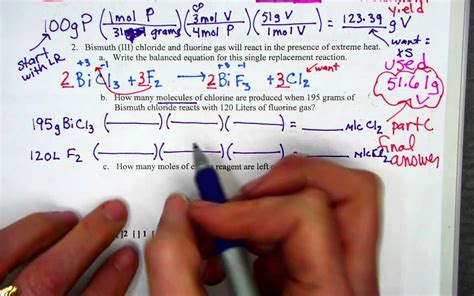 yield
100g P (1 mol P / 31 grams) (3 mol V / 4 mol P) (51g V / 1 mol) = 123.39 g V
start with LR
want = XS
used
51.61g
2. Bismuth (III) chloride and fluorine gas will react in the presence of extreme heat.
a. Write the balanced equation for this single replacement reaction.
+3 -1 +3 -1 want
2BiCl3 + 3F2 → 2BiF3 + 3Cl2
b. How many molecules of chlorine are produced when 195 grams of
Bismuth chloride reacts with 120 Liters of fluorine gas?
195g BiCl3 (———)(———)(———) = ___ mlc Cl2
part C
final answer
120L F2 (———)(———)(———) = ___ mlc
c. How many moles of reagent are left